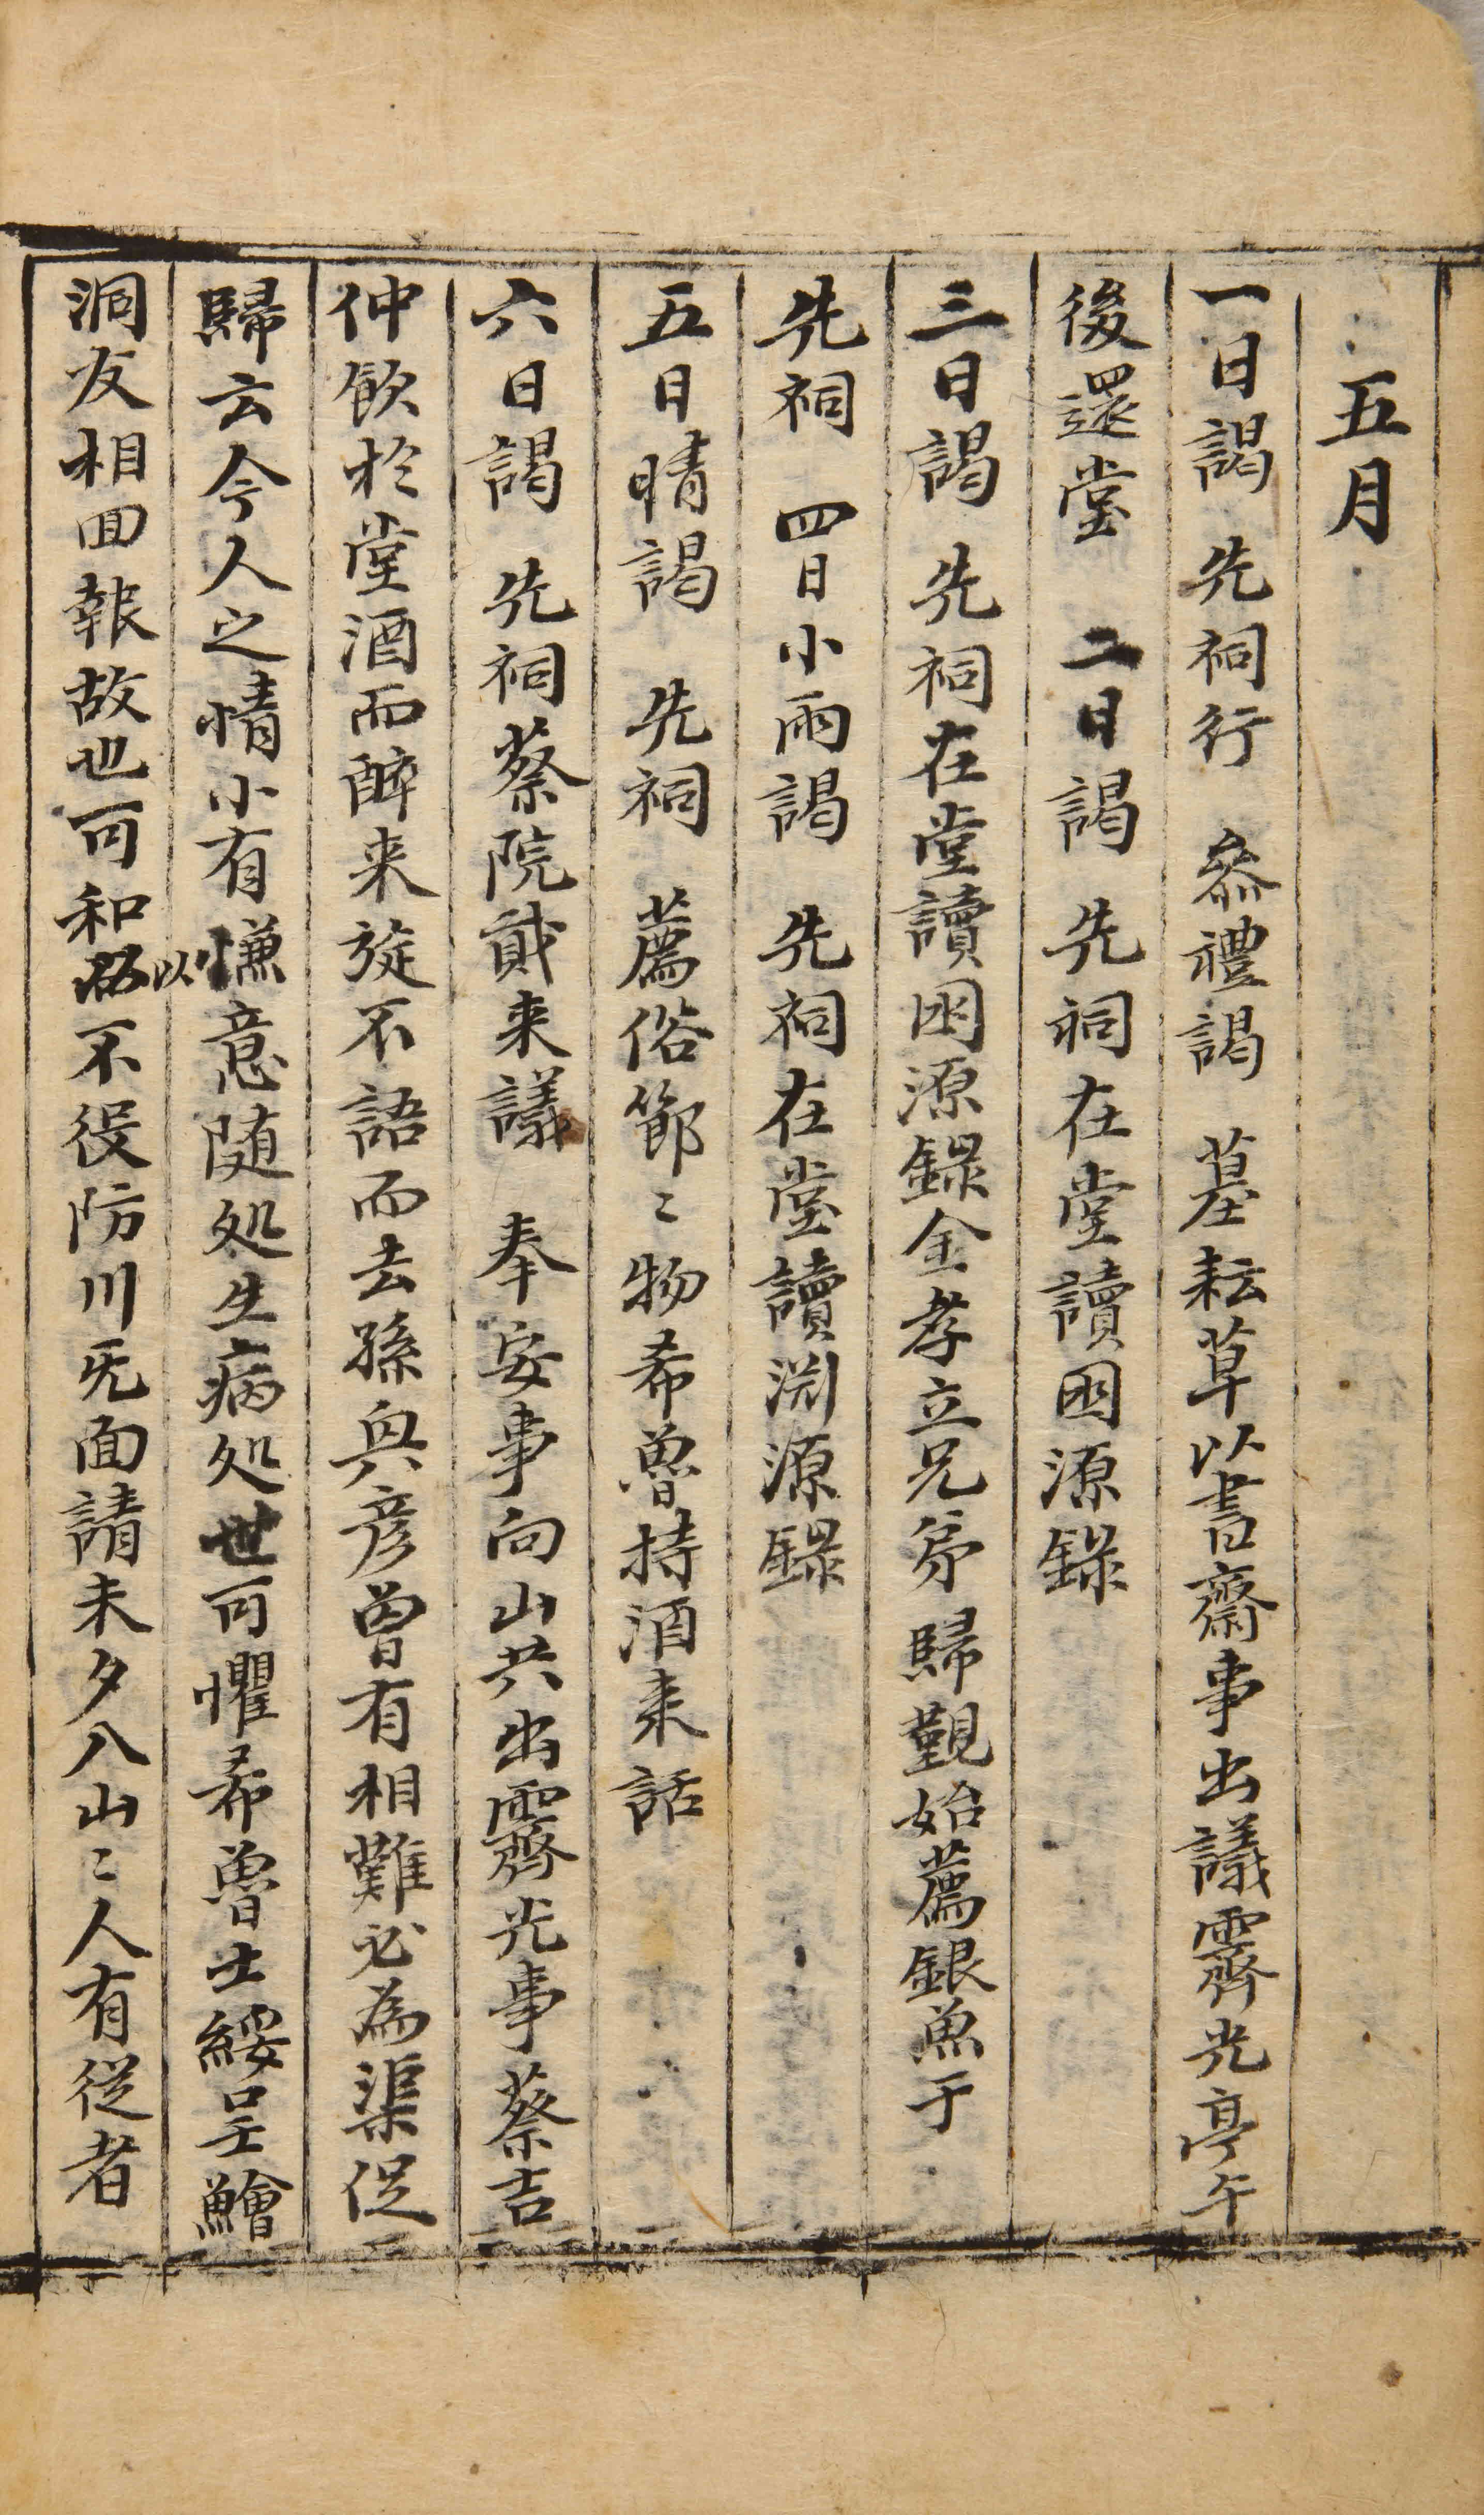 五月
一日謁 先祠行 叅禮謁 墓耘草以書齋事出議霽光亭午
後還堂 二日謁 先祠在堂讀困源錄
三日謁 先祠在堂讀困源錄全孝立兄弟歸覲始薦銀魚于
先祠 四日小雨謁 先祠在堂讀渊源錄
五日晴謁 先祠 薦俗節〻物希魯持酒来話
六日謁 先祠蔡院貳来議 奉安事向山共出霽光事蔡吉
仲飲扵堂酒而醉来旋不語而去孫與彦曽有相難必為渠促
歸云今人之情小有慊意随処生病処世可懼希魯士綏呈鱠
洞友相回報故也可和以不役防川旣面請未夕八山〻人有從者